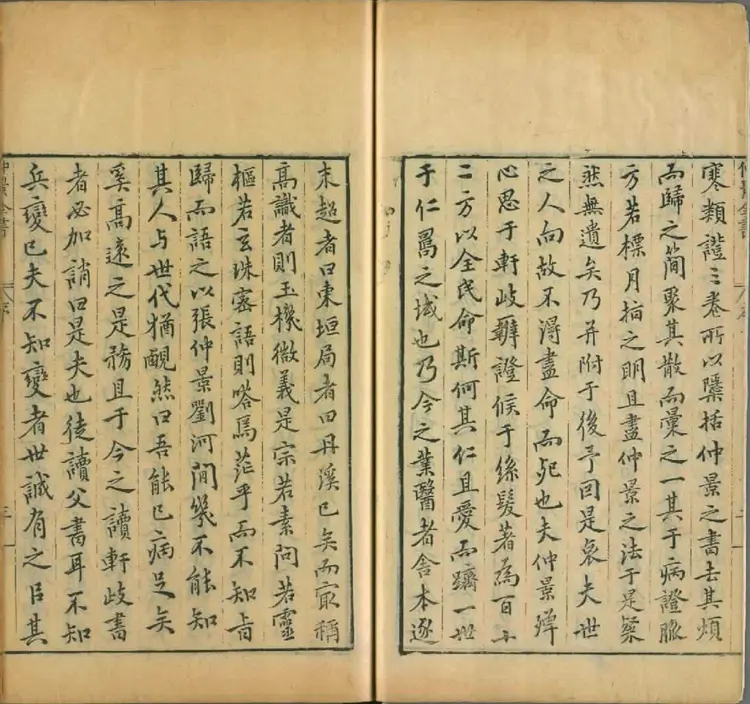 寒類證三卷所以檃括仲景之書去其煩
而歸之簡聚其散而彙之一其于病證脈
方若標月指之明且盡仲景之法于是粲
然無遺矣乃并附于後予因是哀夫世
之人向故不得盡命而死也夫仲景殫
心思于軒岐辯證候于絲髮著為百十
二方以全民命斯何其仁且愛而躋一世
于仁壽之域也乃今之業醫者舍本逐
末超者曰東垣局者曰丹溪已矣而最稱
高識者則玉機微義是宗若素問若靈
樞若玄珠密語則嗒焉茫乎而不知旨
歸而語之以張仲景劉河間幾不能知
其人与世代猶靦然曰吾能已病足矣
奚高遠之是務且于今之讀軒岐書
者必加誚曰是夫也徒讀父書耳不知
兵變已夫不知變者世誠有之以其
仲景全書
序
三